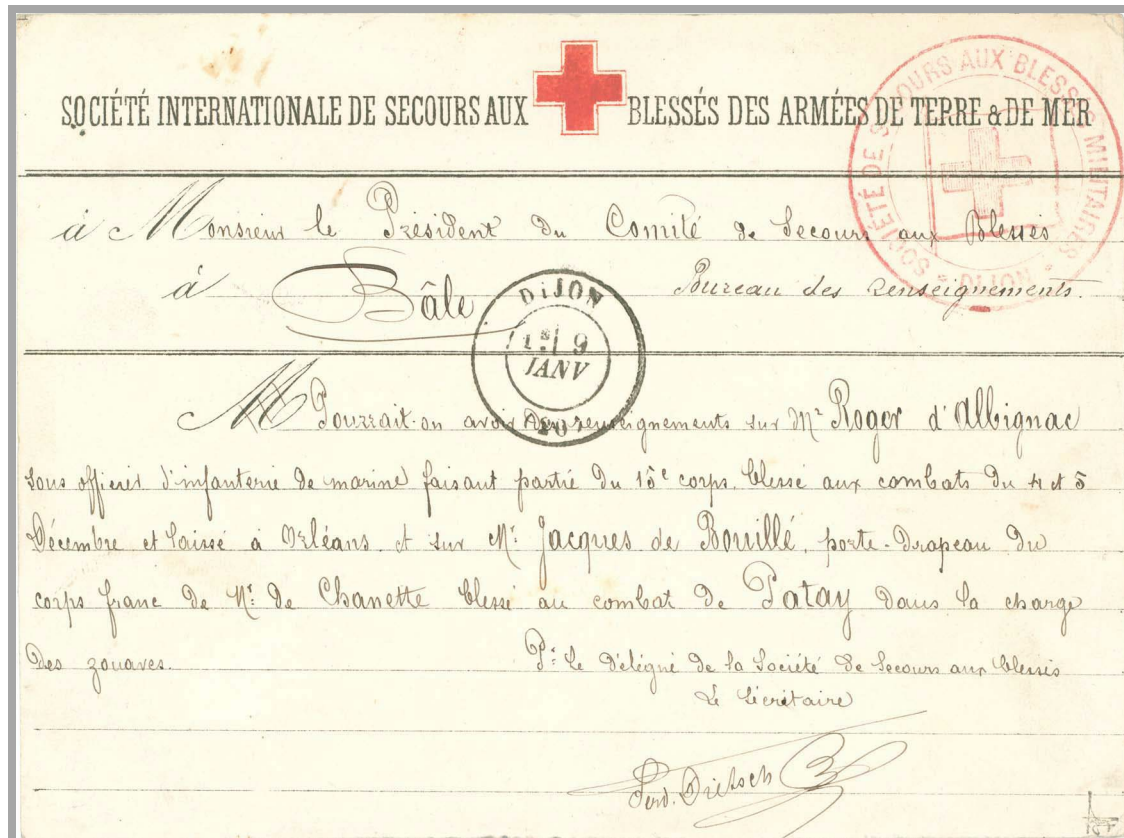 SOCIÉTÉ INTERNATIONALE DE SECOURS AUX BLESSÉS DES ARMÉES DE TERRE & DE MER
SOCIÉTÉ DE SECOURS AUX BLESSÉS MILITAIRES
DIJON
à Monsieur le Président du Comité de Secours aux Blessés
à Bâle Bureau des renseignements.
DIJON
9
JANV
20
M Pourrait-on avoir des renseignements sur Mr Roger d'Albignac
sous officier d'infanterie de marine faisant partie du 15e corps, blessé aux combats du 4 et 5
Décembre et laissé à Orléans, et sur Mr Jacques de Bouillé, porte-drapeau du
corps franc de Mr de Chanette blessé au combat de Patay dans la charge
des zouaves. Pr Le Délégué de la Société de Secours aux blessés
Le Secrétaire
Ferd.